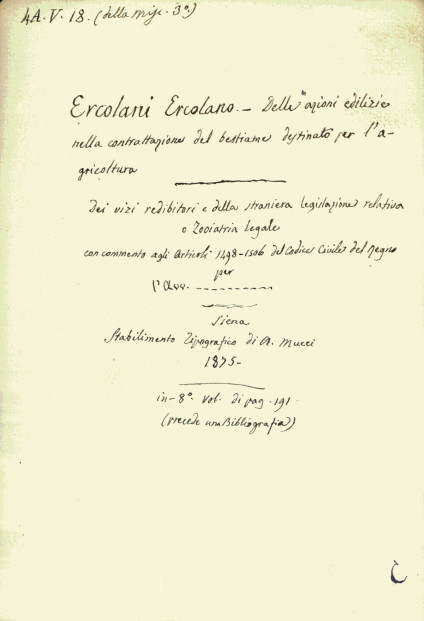 4A. V. 18. (della Misc. 3ª.)
Ercolani Ercolano. — Delle azioni edilizie
nella contrattazione del bestiame destinato per l'a-
gricoltura
Dei vizi redibitori e della straniera legislazione relativa
o Zooiatria legale
con commento agli Articoli 1498-1506 del Codice Civile del Regno
per
l'Avv. - - - - - - - - - - -
Siena
Stabilimento Tipografico di A. Mucci
1875-
in-8º. vol. di pag. 191.
(precede una Bibliografia)